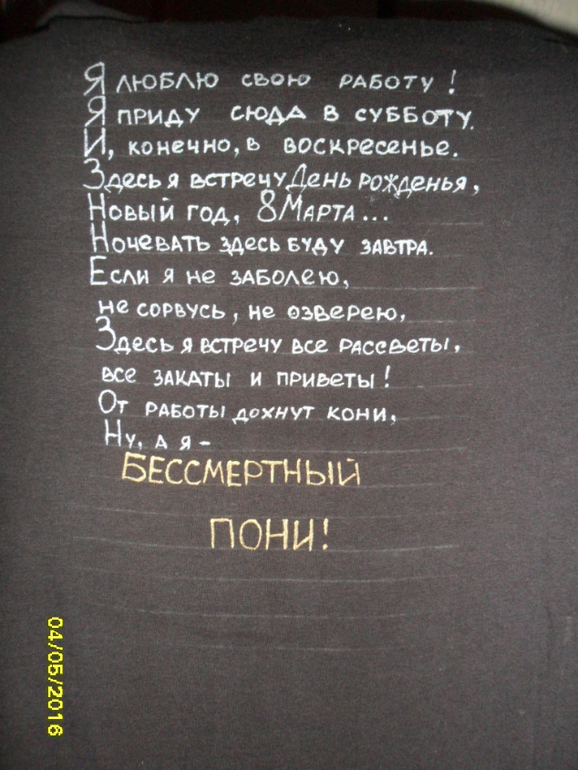 Я люблю свою работу!
Я приду сюда в субботу.
И, конечно, в воскресенье.
Здесь я встречу День рожденья,
Новый год, 8 Марта...
Ночевать здесь буду завтра.
Если я не заболею,
не сорвусь, не озверею,
Здесь я встречу все рассветы,
все закаты и приветы!
От работы дохнут кони,
Ну, а я -
БЕССМЕРТНЫЙ
ПОНИ!
04/05/2016